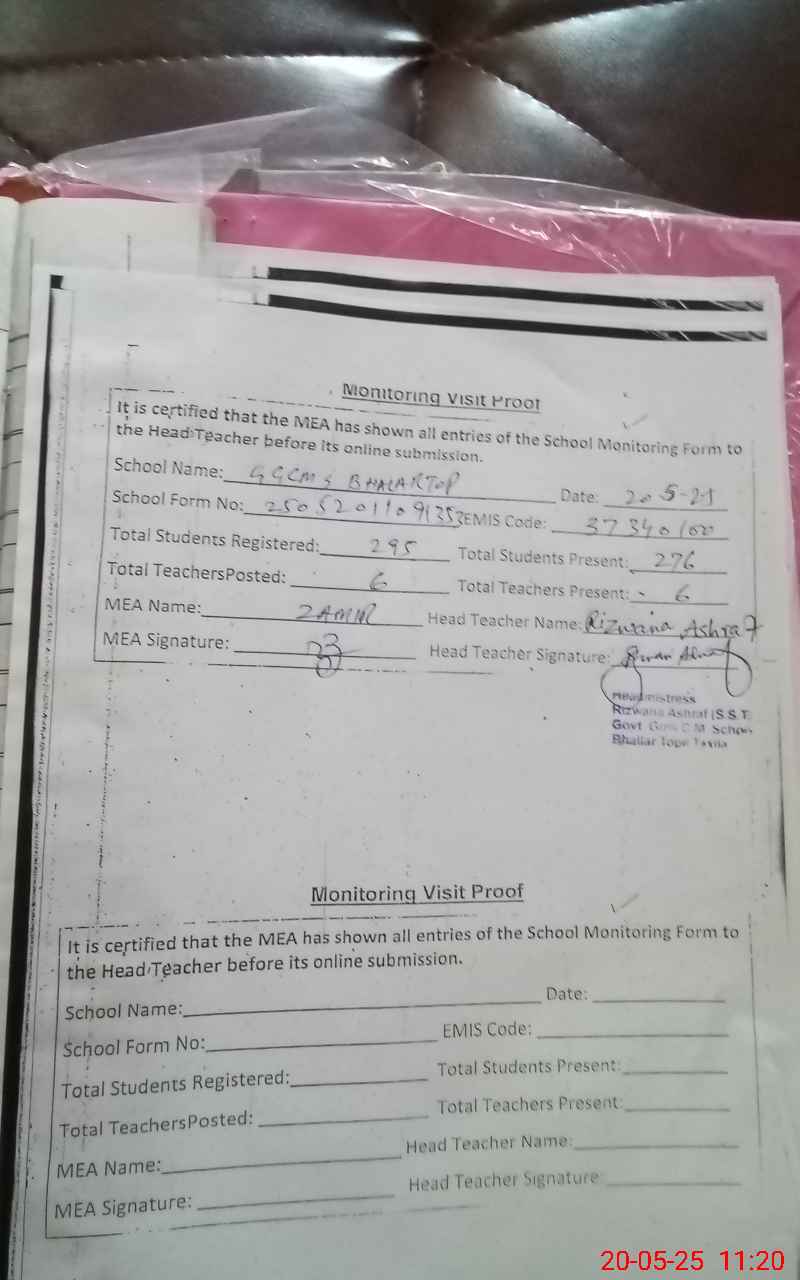 Monitoring Visit Proof
It is certified that the MEA has shown all entries of the School Monitoring Form to
the Head Teacher before its online submission.
School Name: GGCMS BHALARTOP Date: 20-5-25
School Form No: EMIS Code: 37340100
Total Students Registered: 295 Total Students Present: 276
Total TeachersPosted: 6 Total Teachers Present: 6
MEA Name: ZAMIR Head Teacher Name: Rizwana Ashraf
MEA Signature: Head Teacher Signature:
Headmistress
Rizwana Ashraf (S.S.T)
Govt. Girls C.M. School
Bhallar Tope Taxila
Monitoring Visit Proof
It is certified that the MEA has shown all entries of the School Monitoring Form to
the Head Teacher before its online submission.
School Name: Date:
School Form No: EMIS Code:
Total Students Registered: Total Students Present:
Total TeachersPosted: Total Teachers Present:
MEA Name: Head Teacher Name:
MEA Signature: Head Teacher Signature:
20-05-25 11:20